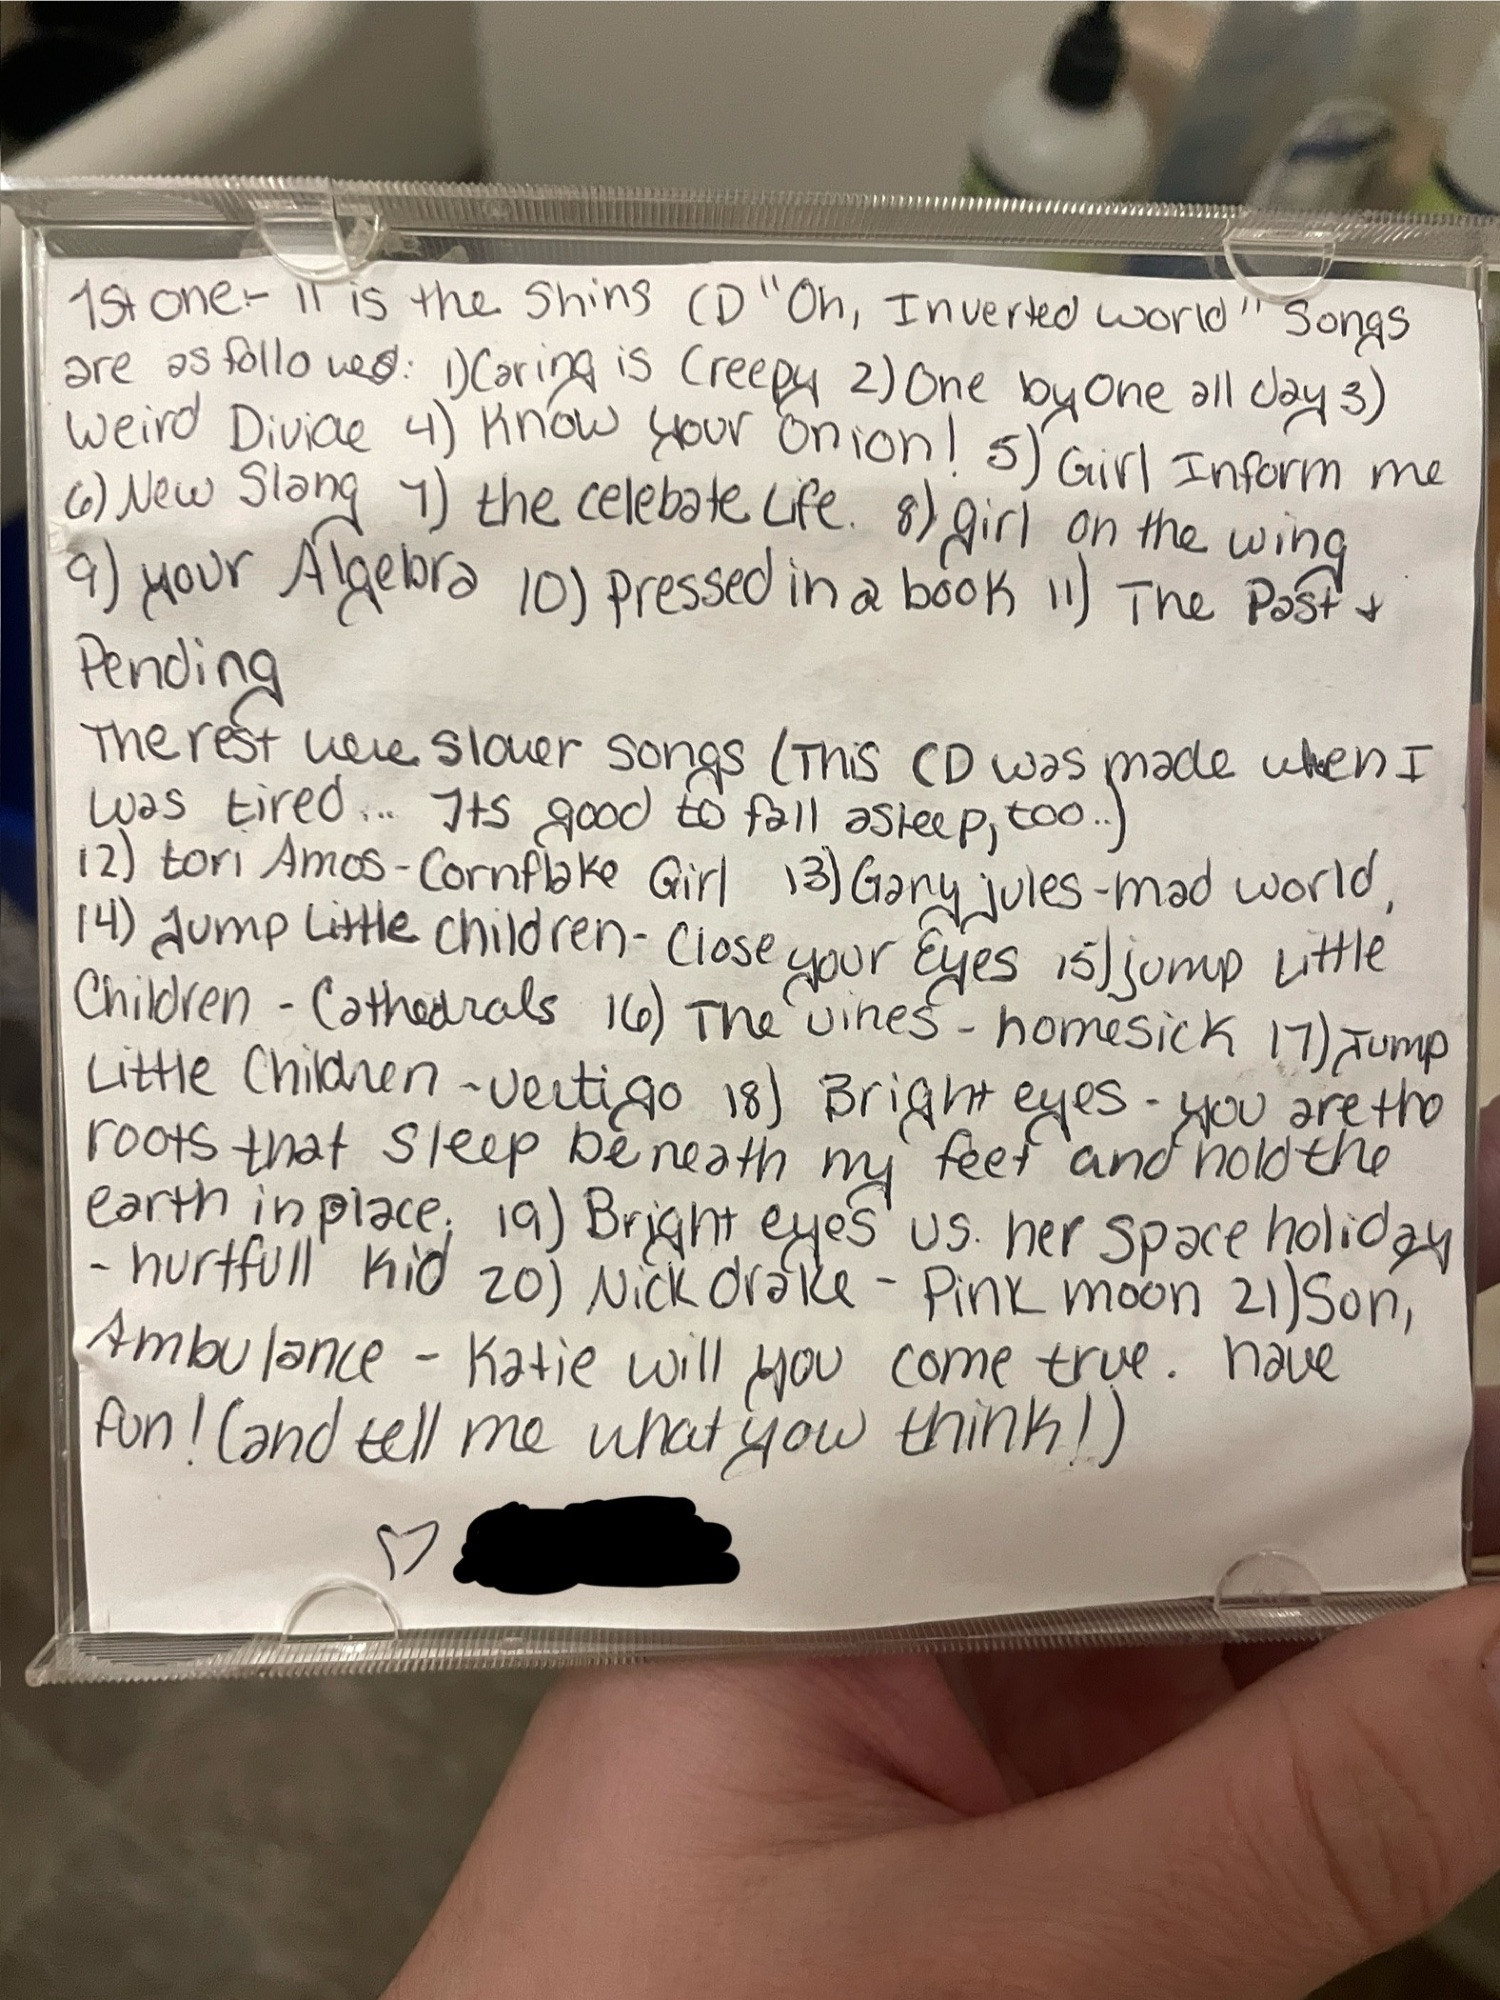 1st one - 11 is the Shins CD "Oh, Inverted World" Songs
are as followed: 1) Caring is Creepy 2) One by One all day 3)
Weird Divide 4) Know your Onion! 5) Girl Inform me
6) New Slang 7) the celebate Life. 8) girl on the wing
9) your Algebra 10) pressed in a book 11) The Past +
Pending
The rest were slower songs (This CD was made when I
was tired... Its good to fall asleep, too..)
12) tori Amos - Cornflake Girl 13) Gary jules - mad world,
14) Jump Little children - Close your Eyes 15) jump Little
Children - Cathedrals 16) The vines - homesick 17) Jump
Little Children - Vertigo 18) Bright eyes - you are the
roots that sleep beneath my feet and hold the
earth in place. 19) Bright eyes vs. her space holiday
- hurtfull kid 20) Nick drake - Pink moon 21) Son,
Ambulance - Katie will you come true. have
fun! (and tell me what you think!)
♡